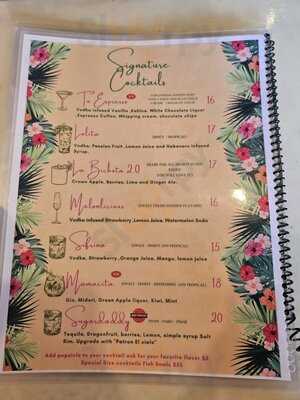 Signature
Cocktails
Tu Espresso 16
Vodka infused Vanilla, Kahlua, White Chocolate Liquor
Espresso Coffee, Whipping cream, chocolate chips
Lolita 17
Vodka, Passion Fruit, Lemon Juice and Habanero Infused
Syrup.
La Bichota 2.0 17
Crown Apple, Berries, Lime and Ginger Ale.
Melodicious 16
Vodka infused Strawberry, Lemon Juice, Watermelon Soda
Sabrina 15
Vodka, Strawberry, Orange Juice, Mango, lemon Juice
Mamacita 18
Gin, Midori, Green Apple liquor, Kiwi, Mint
Sugardaddy 20
Tequila, Dragonfruit, berries, Lemon, simple syrup Salt
Rim. Upgrade with "Patron El cielo"
Add popsicle to your cocktail ask for your favorite flavor $5
Special Size cocktails Fish bowls $35